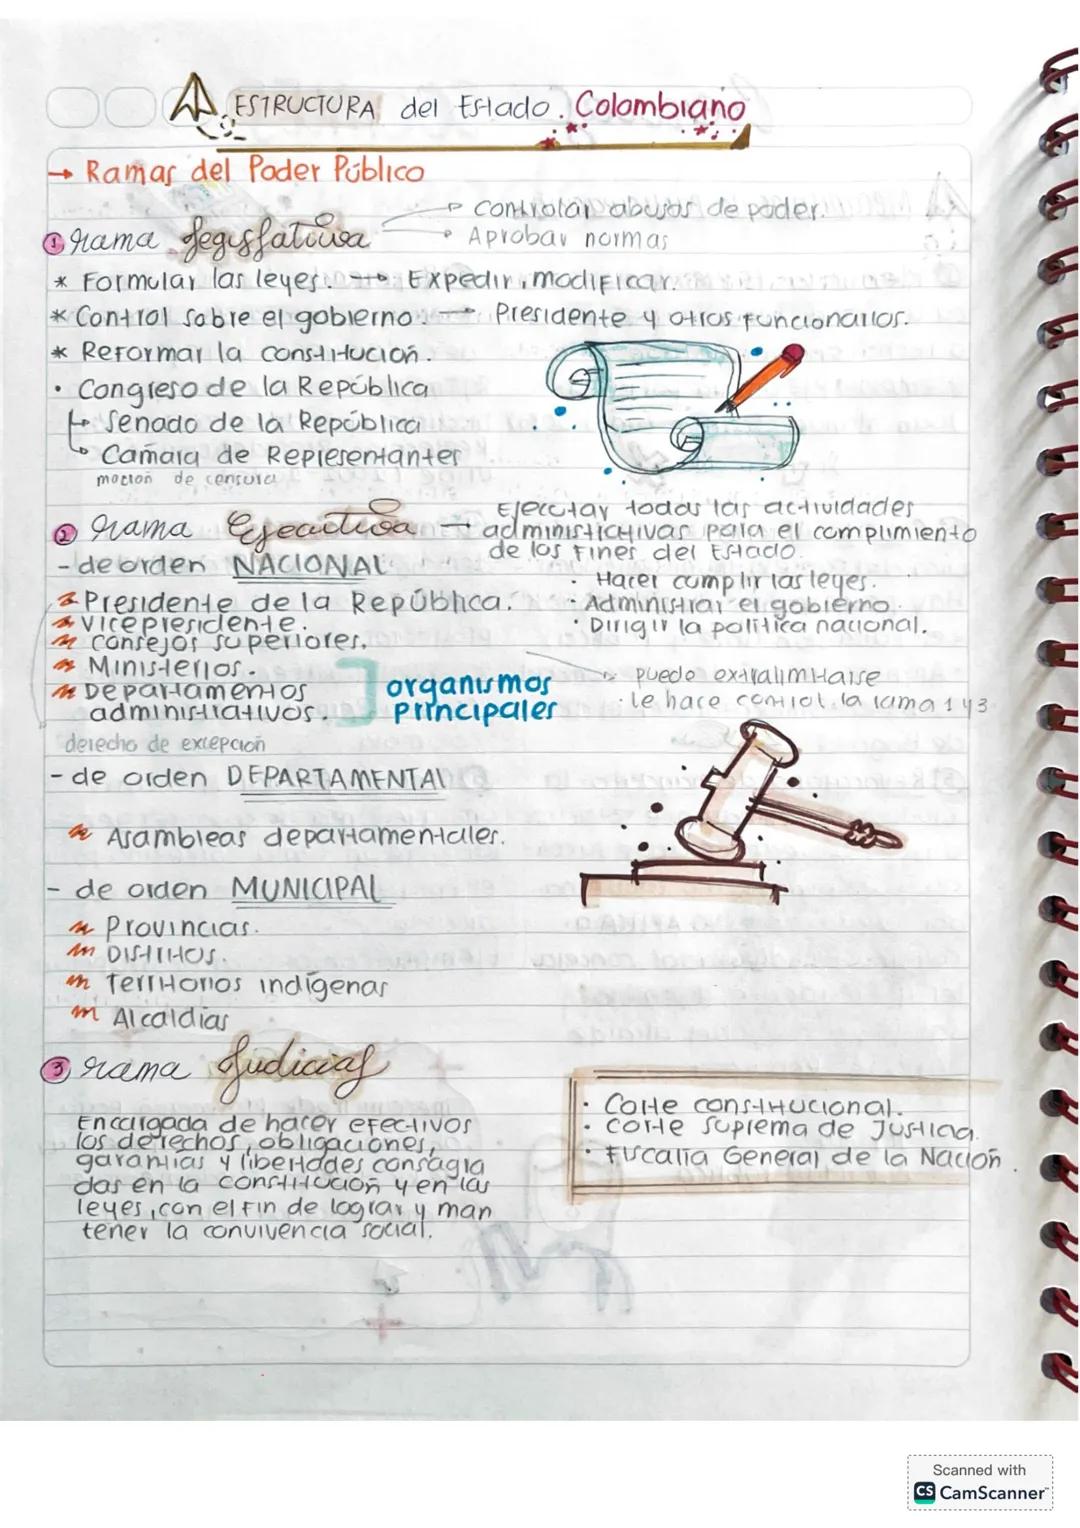 ESTRUCTURA del Estado. Colombiano
→ Ramas del Poder Público
① rama legislativa
→ controlar abusos de poder.
• Aprobar normas
* Formular las leyes. → Expedir, modificar.
* Control sobre el gobierno. → Presidente y otros funcionarios.
* Reformar la constitución.
• Congreso de la República
↳ Senado de la República
↳ Camara de Representantes
moción de censura
② rama Ejecutiva → Ejecutar todas las actividades
administrativas para el complimiento
de los fines del Estado.
- de orden NACIONAL
• Hacer cumplir las leyes.
Presidente de la República.
• Administrar el gobierno.
vicepresidente.
• Dirigir la política nacional.
consejos superiores.
Ministerios.
Departamentos
administrativos.
organismos
principales
→ puede extralimitarse
• le hace control la rama 1 y 3
derecho de excepción
- de orden DEPARTAMENTAL
Asambleas departamentales.
- de orden MUNICIPAL
Provincias.
Distritos.
Territorios indígenas
Alcaldias
③ rama Judicial
Encargada de hacer efectivos
los derechos, obligaciones,
garantías y libertades consagra
das en la constitución y en las
leyes, con el fin de lograr y man
tener la convivencia social.
• Corte constitucional.
• corte suprema de Justicia.
• Fiscalía General de la Nación.
Scanned with
CS CamScanner